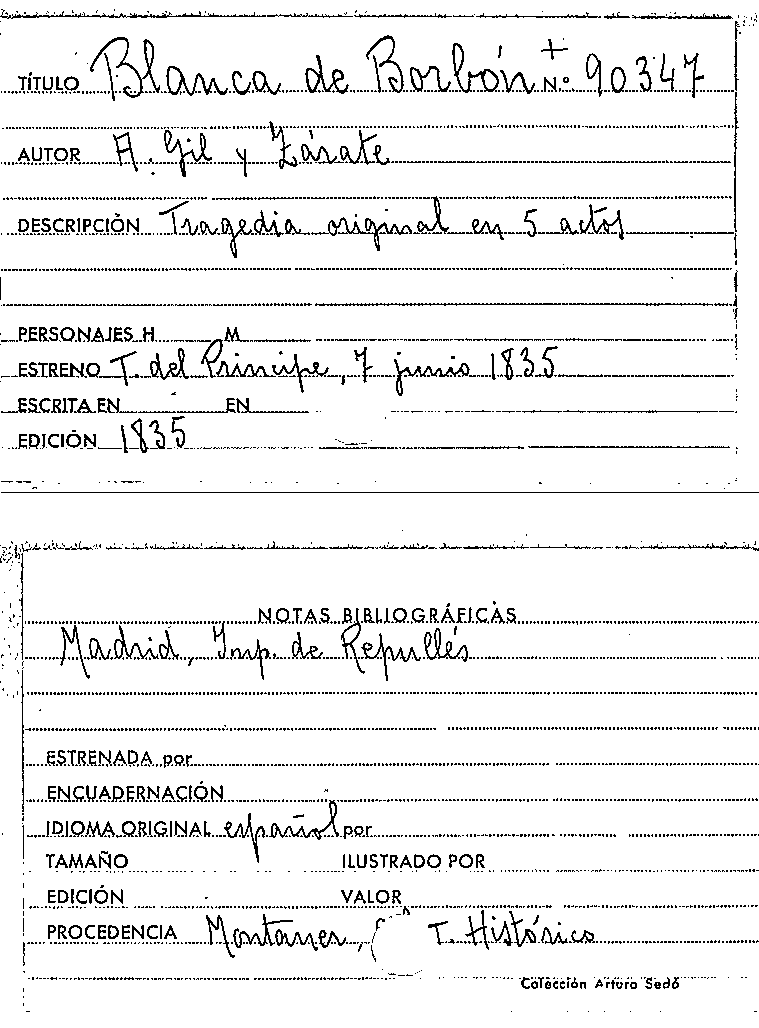 TÍTULO Blanca de Borbón + N.º 90347
AUTOR A. Gil y Zárate
DESCRIPCIÓN Tragedia original en 5 actos
PERSONAJES H M
ESTRENO T. del Principe, 7 junio 1835
ESCRITA EN EN
EDICIÓN 1835
NOTAS BIBLIOGRÁFICAS
Madrid, Imp. de Repullés
ESTRENADA por
ENCUADERNACIÓN
IDIOMA ORIGINAL español por
TAMAÑO ILUSTRADO POR
EDICIÓN VALOR
PROCEDENCIA Montaner, T. Histórico
Colección Arturo Sedó